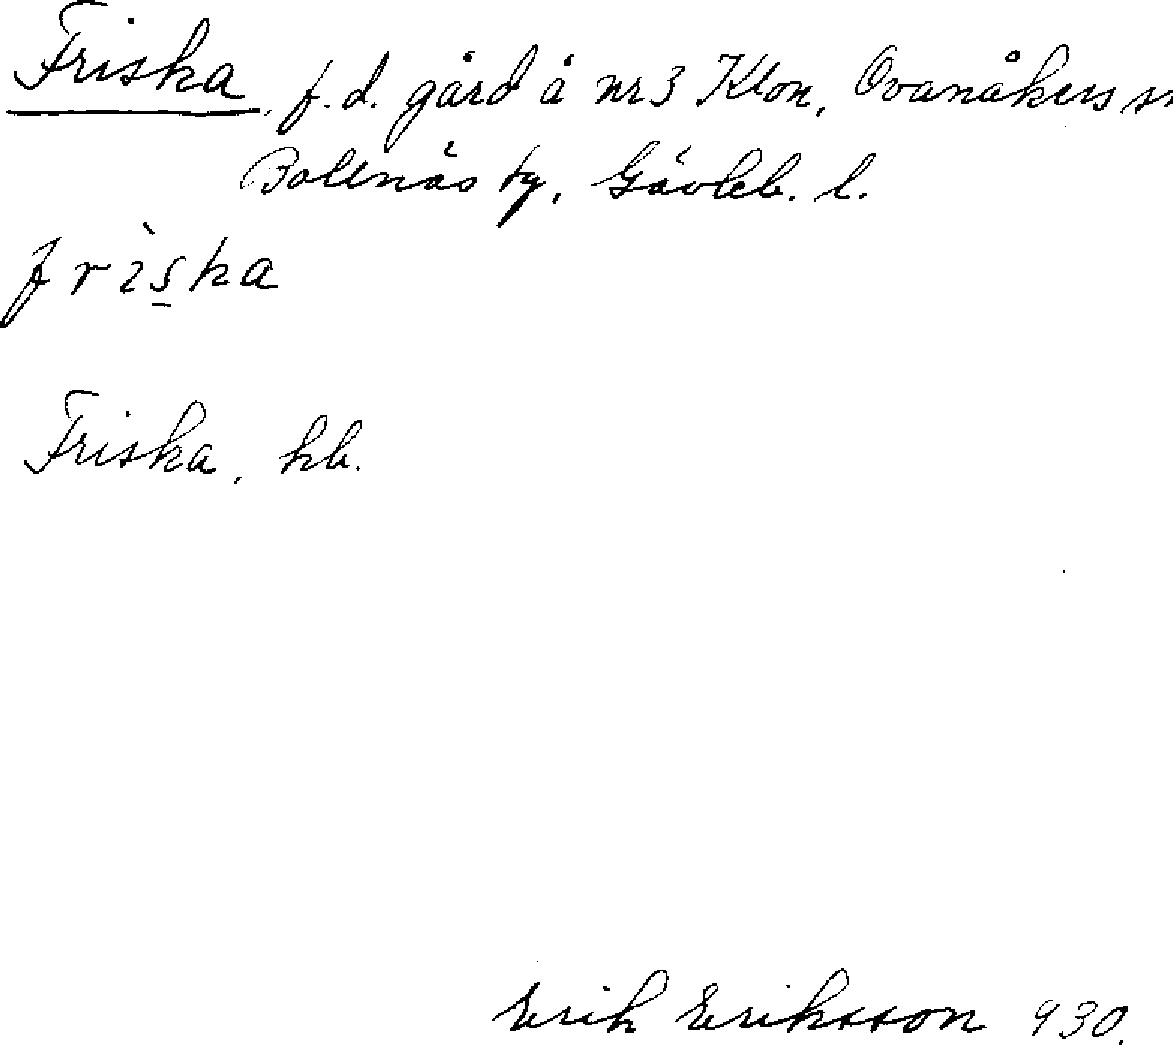 Friska, f.d. gård å nr 3 Klon, Ovanåkers sn
Bollnäs tg, Gävleb. l.
frìs̲ka
Friska, hb.
Erik Eriksson 930.